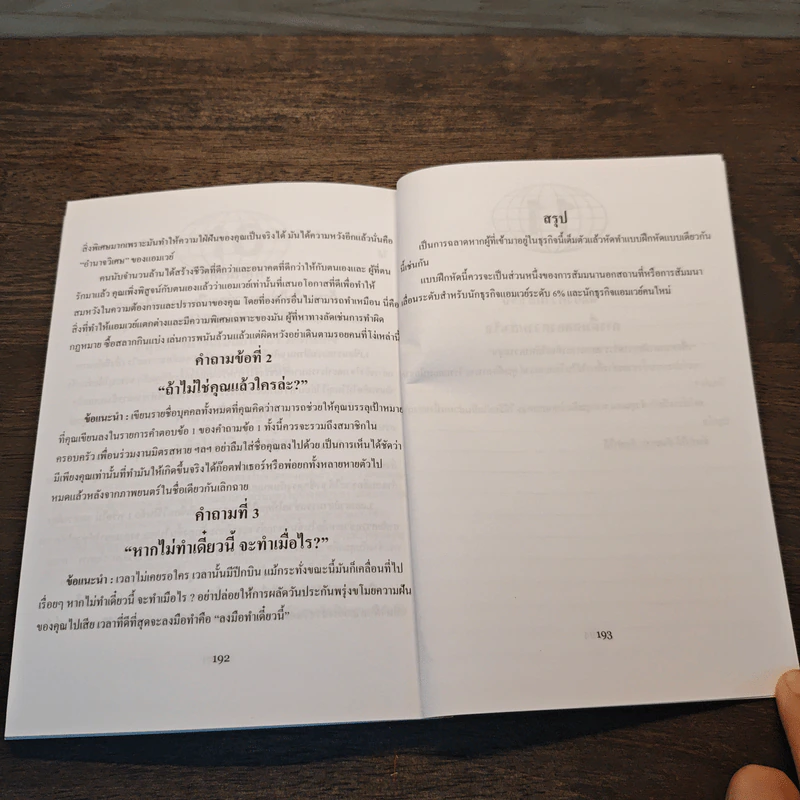 สิ่งพิเศษมากเพราะมันทำให้ความใฝ่ฝันของคุณเป็นจริงได้ มันได้ความหวังอีกแล้วนั่นคือ
“อำนาจวิเศษ” ของแอมเวย์
คนนับจำนวนล้านได้สร้างชีวิตที่ดีกว่าและอนาคตที่ดีกว่าให้กับตนเองและ ผู้ที่ตน
รักมาแล้ว คุณเพิ่งพิสูจน์กับตนเองแล้วว่าแอมเวย์เท่านั้นที่เสนอโอกาสที่ดีเพื่อทำให้
สมหวังในความต้องการและปรารถนาของคุณ โดยที่องค์กรอื่นไม่สามารถทำเหมือน นี่คือ
สิ่งที่ทำให้แอมเวย์แตกต่างและมีความพิเศษเฉพาะของมัน ผู้ที่หาทางลัดเช่นการทำผิด
กฎหมาย ซื้อสลากกินแบ่ง เล่นการพนันล้วนแล้วแต่ผิดหวังอย่าเดินตามรอยคนที่โง่เหล่านี้
คำถามข้อที่ 2
“ถ้าไม่ใช่คุณแล้วใครล่ะ?”
ข้อแนะนำ : เขียนรายชื่อบุคคลทั้งหมดที่คุณคิดว่าสามารถช่วยให้คุณบรรลุเป้าหมาย
ที่คุณเขียนลงในรายการคำตอบข้อ 1 ของคำถามข้อ 1 ทั้งนี้ควรจะรวมถึงสมาชิกใน
ครอบครัว เพื่อนร่วมงานมิตรสหาย ฯลฯ อย่าลืมใส่ชื่อคุณลงไปด้วย เป็นการเห็นได้ชัดว่า
มีเพียงคุณเท่านั้นที่ทำมันให้เกิดขึ้นจริงได้ก๊อดฟาเธอร์หรือพ่อยกทั้งหลายหายตัวไป
หมดแล้วหลังจากภาพยนตร์ในชื่อเดียวกันเลิกฉาย
คำถามที่ 3
“หากไม่ทำเดี๋ยวนี้ จะทำเมื่อไร?”
ข้อแนะนำ : เวลาไม่เคยรอใคร เวลานั้นมีปีกบิน แม้กระทั่งขณะนี้มันก็เคลื่อนที่ไป
เรื่อยๆ หากไม่ทำเดี๋ยวนี้ จะทำเมื่อไร ? อย่าปล่อยให้การผลัดวันประกันพรุ่งขโมยความฝัน
ของคุณไปเสีย เวลาที่ดีที่สุดจะลงมือทำคือ “ลงมือทำเดี๋ยวนี้”
192
สรุป
เป็นการฉลาดหากผู้ที่เข้ามาอยู่ในธุรกิจนี้เต็มตัวแล้วหัดทำแบบฝึกหัดแบบเดียวกัน
นี้เช่นกัน
แบบฝึกหัดนี้ควรจะเป็นส่วนหนึ่งของการสัมมนานอกสถานที่หรือการสัมมนา
เลื่อนระดับสำหรับนักธุรกิจแอมเวย์ระดับ 6% และนักธุรกิจแอมเวย์คนใหม่
193